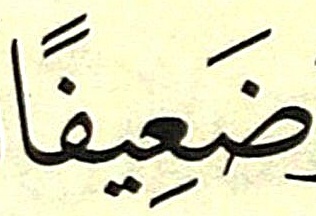 ضَعِيفًا